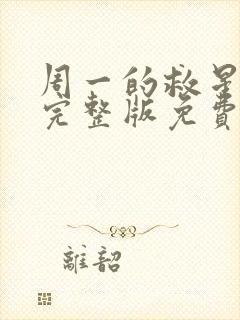 周一的救星
完整版免費
離韶